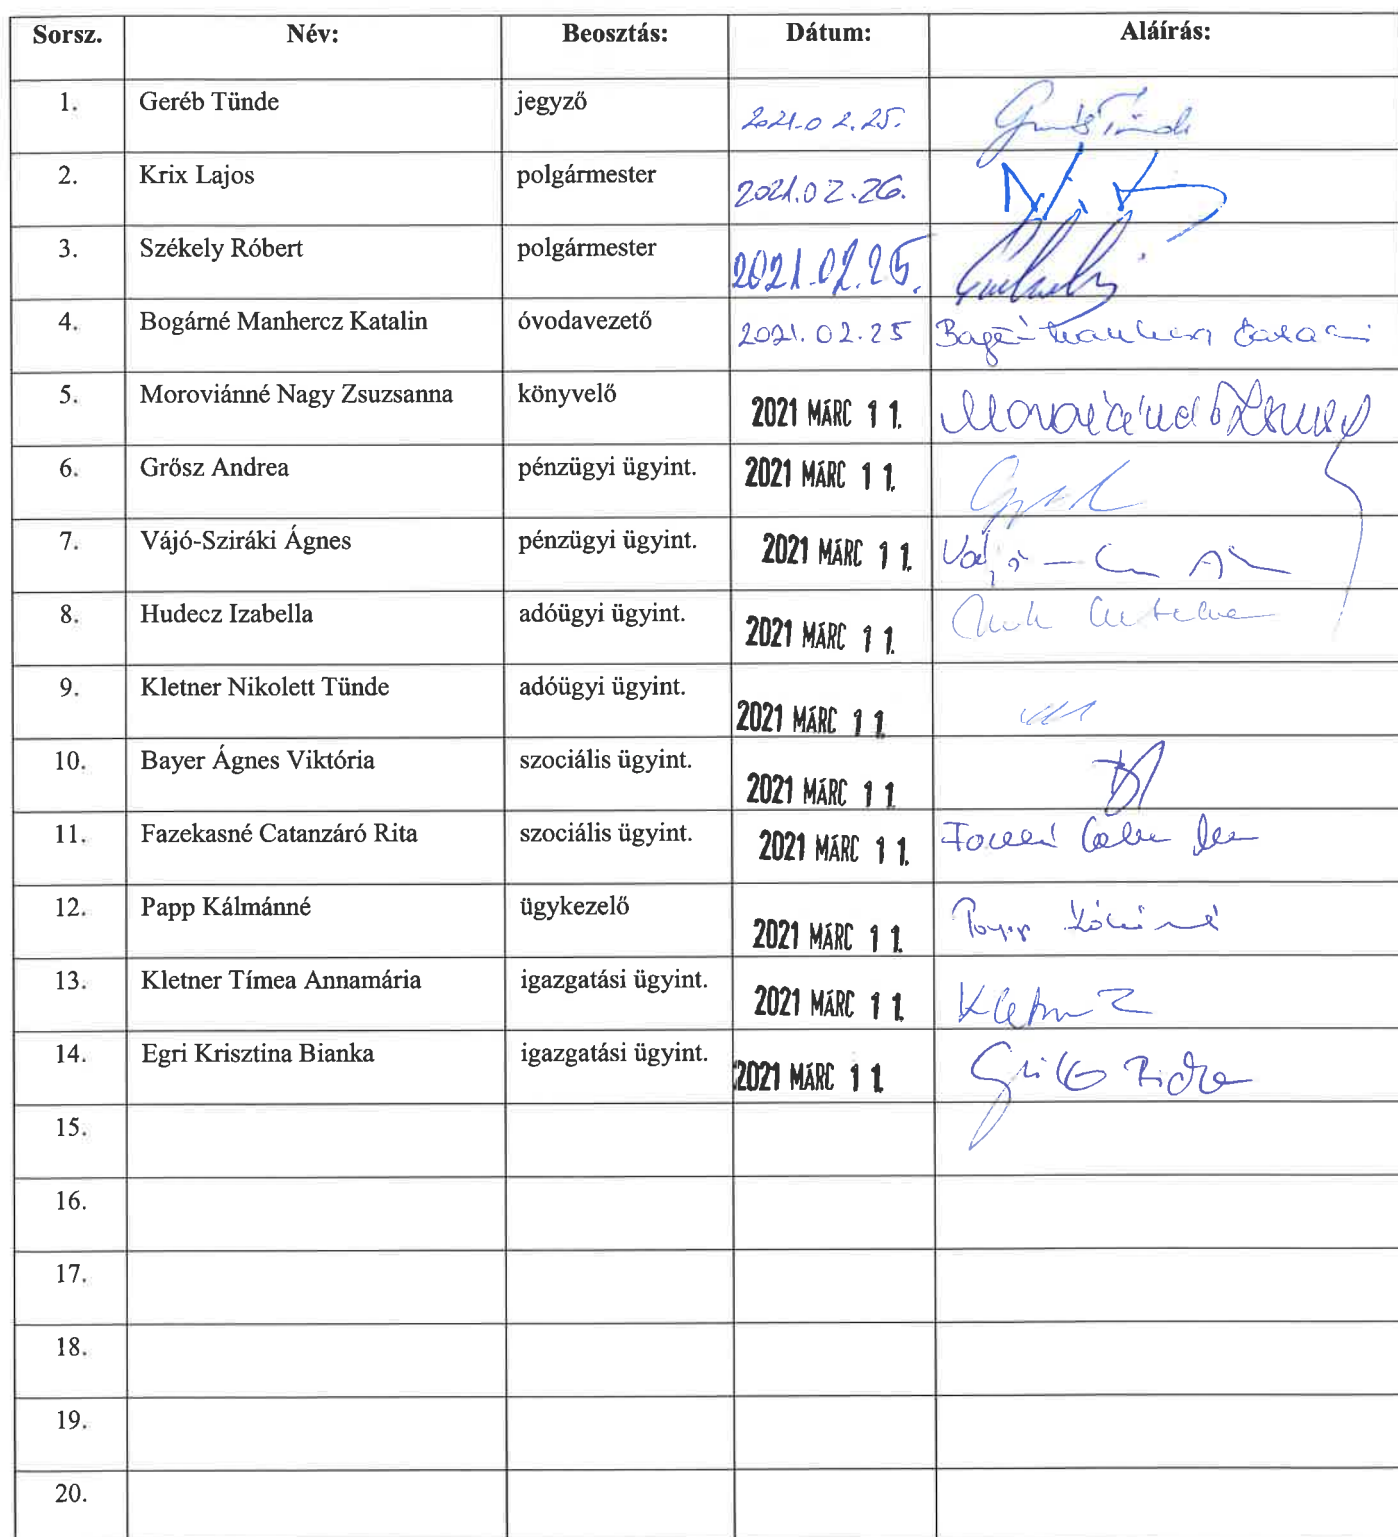 Sorsz. Név: Beosztás: Dátum: Aláírás:
1. Geréb Tünde jegyző 2021.02.25.
2. Krix Lajos polgármester 2021.02.26.
3. Székely Róbert polgármester 2021.02.25.
4. Bogárné Manhercz Katalin óvodavezető 2021.02.25
5. Moroviánné Nagy Zsuzsanna könyvelő 2021 MÁRC 11.
6. Grősz Andrea pénzügyi ügyint. 2021 MÁRC 11.
7. Vájó-Sziráki Ágnes pénzügyi ügyint. 2021 MÁRC 11.
8. Hudecz Izabella adóügyi ügyint. 2021 MÁRC 11.
9. Kletner Nikolett Tünde adóügyi ügyint. 2021 MÁRC 11
10. Bayer Ágnes Viktória szociális ügyint. 2021 MÁRC 11
11. Fazekasné Catanzáró Rita szociális ügyint. 2021 MÁRC 11.
12. Papp Kálmánné ügykezelő 2021 MÁRC 11. Papp
13. Kletner Tímea Annamária igazgatási ügyint. 2021 MÁRC 11
14. Egri Krisztina Bianka igazgatási ügyint. 2021 MÁRC 11
15.
16.
17.
18.
19.
20.